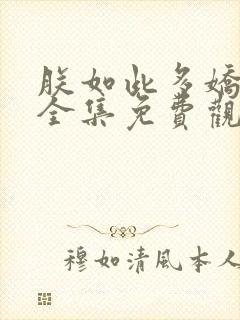 朕如此多嬌
全集免費觀
穆如清風本人